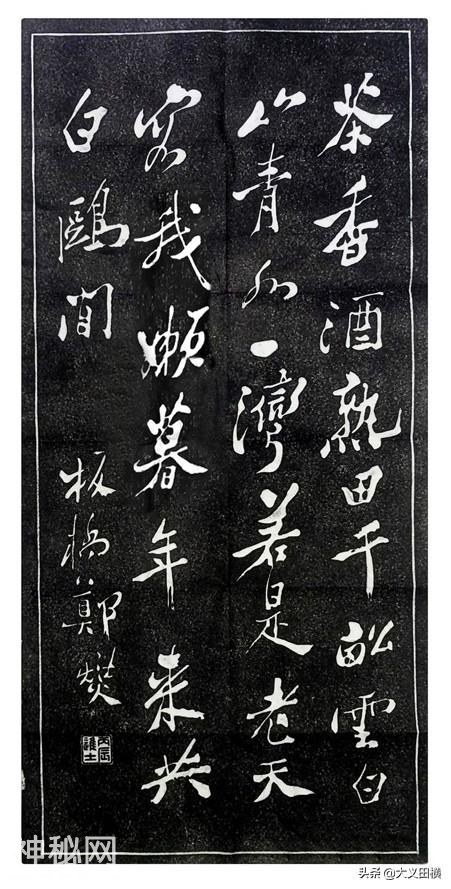 茶香酒熟田千畝雲白
山青水一灣若是老天
容我懶暮年來共
白鷗閒
板橋鄭燮
丙辰進士
神秘网
头条 @大义田横